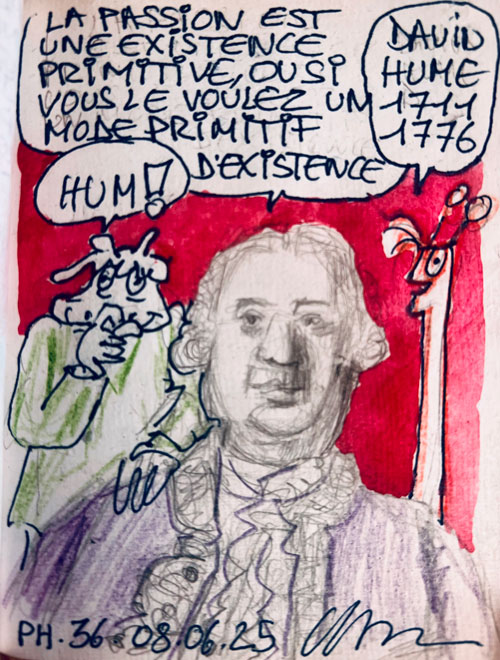 LA PASSION EST
UNE EXISTENCE
PRIMITIVE, OU SI
VOUS LE VOULEZ UN
MODE PRIMITIF
D'EXISTENCE
DAVID
HUME
1711
1776
HUM!
PH. 36 08.06.25